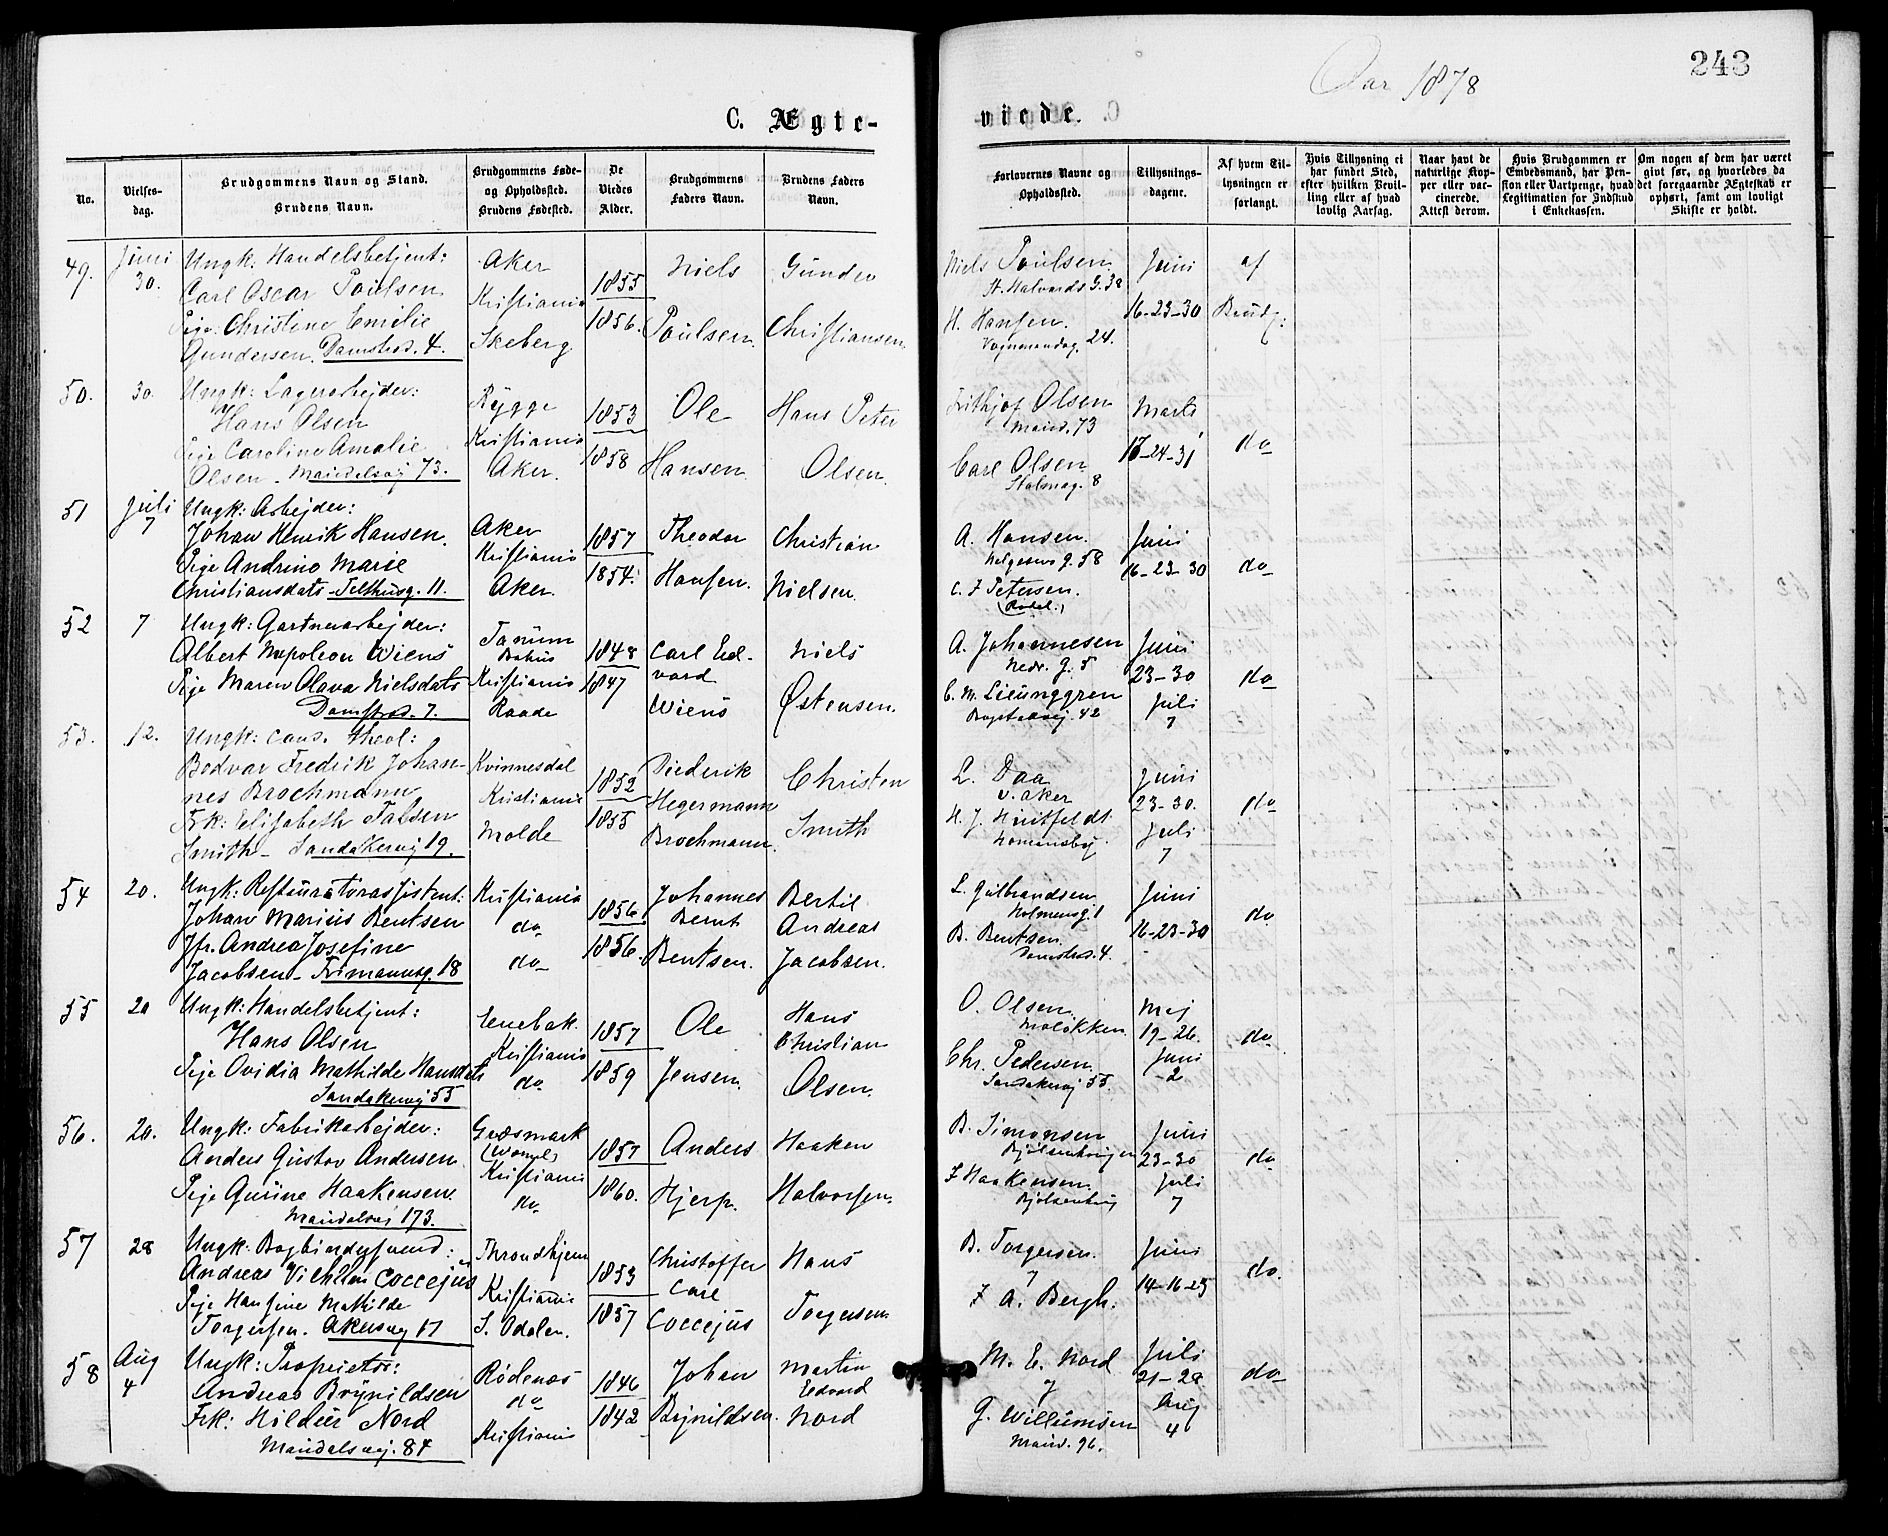 243
Aar 1878
C. Ægte-
viede.
No.
Vielses-
dag.
Brudgommens Navn og Stand.
Brudens Navn.
Brudgommens Føde-
og Opholdssted.
Brudens Fødested.
De
Viedes
Alder.
Brudgommens
Faders Navn.
Brudens Faders
Navn.
Forlovernes Navne og
Opholdssted.
Tillysnings-
dagene.
Af hvem Til-
lysningen er
forlangt.
Hvis Tillysning ei
har fundet Sted,
efter hvilken Bevil-
ling eller af hvad
lovlig Aarsag.
Naar havt de
naturlige Kop-
per eller vac-
cinerede.
Attest derom.
Hvis Brudgommen er
Embedsmand, har Pen-
sion eller Vartpenge, hvad
Legitimation for Indskud
i Enkekassen.
Om nogen af dem har været
gift før, og hvorledes da
det foregaaende Ægteskab er
ophørt, samt om lovligt
Skifte er holdt.
49.
Juni
30.
Ungk: Handelsbetjent:
Carl Oscar Poulsen
Pige: Christine Emilie
Gundersen. Damstrd. 4.
Aker
Kristiania
Skeberg
1855
1856.
Niels
Poulsen.
Gunder
Christiansen.
Niels Poulsen.
St. Halvards G. 38
H. Hansen.
Vognmandsg. 24.
Juni
16-23-30
af
Brudg:
50.
30.
Ungk: Lagerarbejder:
Hans Olsen
Pige Caroline Amalie
Olsen - Maridalsvej 73.
Rygge
Kristiania
Aker.
1853
1858
Ole
Hansen
Hans Peter
Olsen.
Frithjof Olsen
Marid. 73
Carl Olsen
8
Marts
17-24-31
do
51
Juli
7
Ungk: Arbejder:
Johan Henrik Hansen.
Pige Andrine Marie
Christiansdatr - Telthusg. 11.
Aker
Kristiania
Aker.
1857
1854.
Theodor
Hansen.
Christian
Nielsen.
A. Hansen.
Helgesens g. 58
C. F Petersen.
Juni
16-23-30
do
52
7
Ungk: Gartnerarbejder:
Albert Napoleon Wiens
Pige Maren Olava Nielsdatr
Damstrd. 7.
Tanum
Bahus
Kristiania
Raade
1848
1847
Carl Ed-
vard
Wiens
Niels
Østensen.
A. Johannesen
Nedr. g. 5
C. M. Lieunggren
Bogstadvej. 42
Juni
23-30
Juli
7
do
53.
12.
Ungk: cand. theol:
Bodvar Fredrik Johan-
nes Brochmann
Frk: Elisabeth Falsen
Smith - Sandakervj 19.
Kvinnesdal
Kristiania
Molde
1852
1855
Diederik
Hegermann
Brochmann.
Christen
Smith
L. Daa
V. Aker
H. J. Huitfeldt
Homansby
Juni
23-30.
Juli
7
do
54
20.
Ungk: Restaurationsassistent:
Johan Marius Bentsen
Jfr. Andrea Josefine
Jacobsen - Frimannsg. 18
Kristiania
do
do
1856
1856.
Johannes
Bernt
Bentsen.
Bertil
Andreas
Jacobsen.
L. Gulbrandsen.
Holmensg. 1
B. Bentsen.
Damstrd. 4.
Juni
16-23-30
do
55
20
Ungk: Handelsbetjent:
Hans Olsen
Pige Ovidia Mathilde Hansdatr
Sandakervej 55
Enebak.
Kristiania
do
1857
1859
Ole
Jensen.
Hans
Christian
Olsen.
O. Olsen.
Moløkken.
Chr. Pedersen.
Sandakervj 55.
Mej
19-26.
Juni
2
do
56.
20.
Ungk: Fabrikarbejder:
Anders Gustav Andersen
Pige Gurine Haakensen.
Maridalsvej 173.
Græsmark
Kristiania
do
1857
1860.
Anders
Hjerp.
Haaken
Halvorsen.
B. Simonsen
Bjølsenhougen
F Haakensen.
Bjølsenhoug
Juni
23-30
Juli
7
do
57
28
Ungk: Bogbindersvend:
Andreas Vilhelm Coccejus
Pige Hansine Mathilde
Torgersen. Akersvej 17
Throndhjem
Kristiania
S. Odalen.
1853
1857
Christoffer
Carl
Coccejus
Hans
Torgersen.
B. Torgersen.
F. A. Bergh.
Juni
14-16-23
do.
58
Aug
4
Ungk: Proprietær:
Andreas Brynildsen
Frk: Hildur Nord
Maridalsvej. 84
Rødenæs
do
Kristiania
1846
1842
Johan
Brynildsen.
Martin
Edvard
Nord
M. E. Nord
og
G. Willumsen
Marid. 96.
Juli
21-28
Aug
4
do